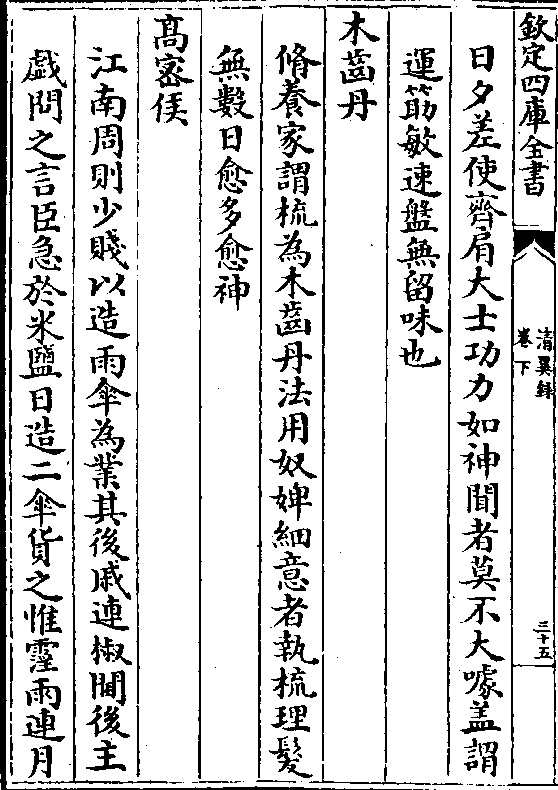 欽定四庫全書
清異錄
卷下
三十五
日夕差使齊肩大士功力如神聞者莫不大噱盖謂
運筯敏速盤無留味也
木齒丹
脩養家謂梳為木齒丹法用奴婢細意者執梳理髮
無數日愈多愈神
髙密侯
江南周則少賤以造雨傘為業其後戚連椒閫後主
戯問之言臣急於米鹽日造二傘貨之惟霪雨連月